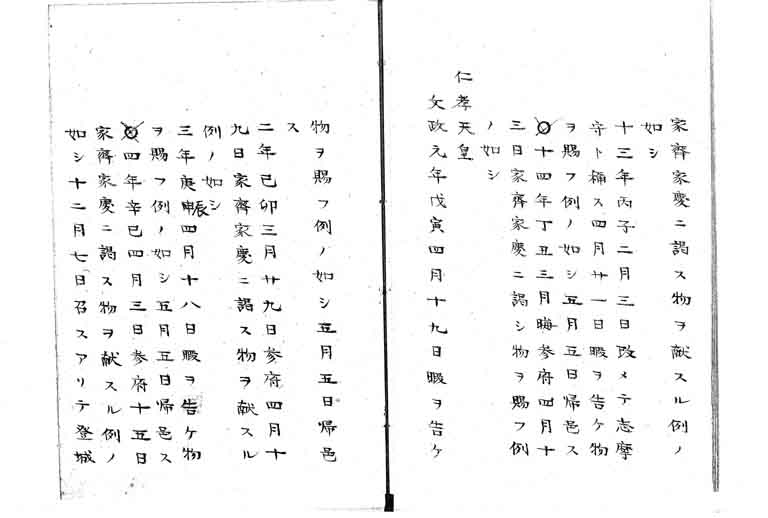 家齊家慶ニ謁ス物ヲ献スル例ノ
如シ
十三年丙子二月三日改メテ志摩
守ト稱ス四月廿一日暇ヲ告ケ物
ヲ賜フ例ノ如シ五月五日帰邑ス
十四年丁丑三月晦参府四月十
三日家齊家慶ニ謁シ物ヲ賜フ例
ノ如シ
仁孝天皇
文政元年戊寅四月十九日暇ヲ告ケ
物ヲ賜フ例ノ如シ五月五日帰邑
ス
二年己卯三月廿九日参府四月十
九日家齊家慶ニ謁ス物ヲ献スル
例ノ如シ
三年庚辰四月十八日暇ヲ告ケ物
ヲ賜フ例ノ如シ五月五日帰邑ス
四年辛巳四月三日参府十五日
家齊家慶ニ謁ス物ヲ献スル例ノ
如シ十二月七日召スアリテ登城